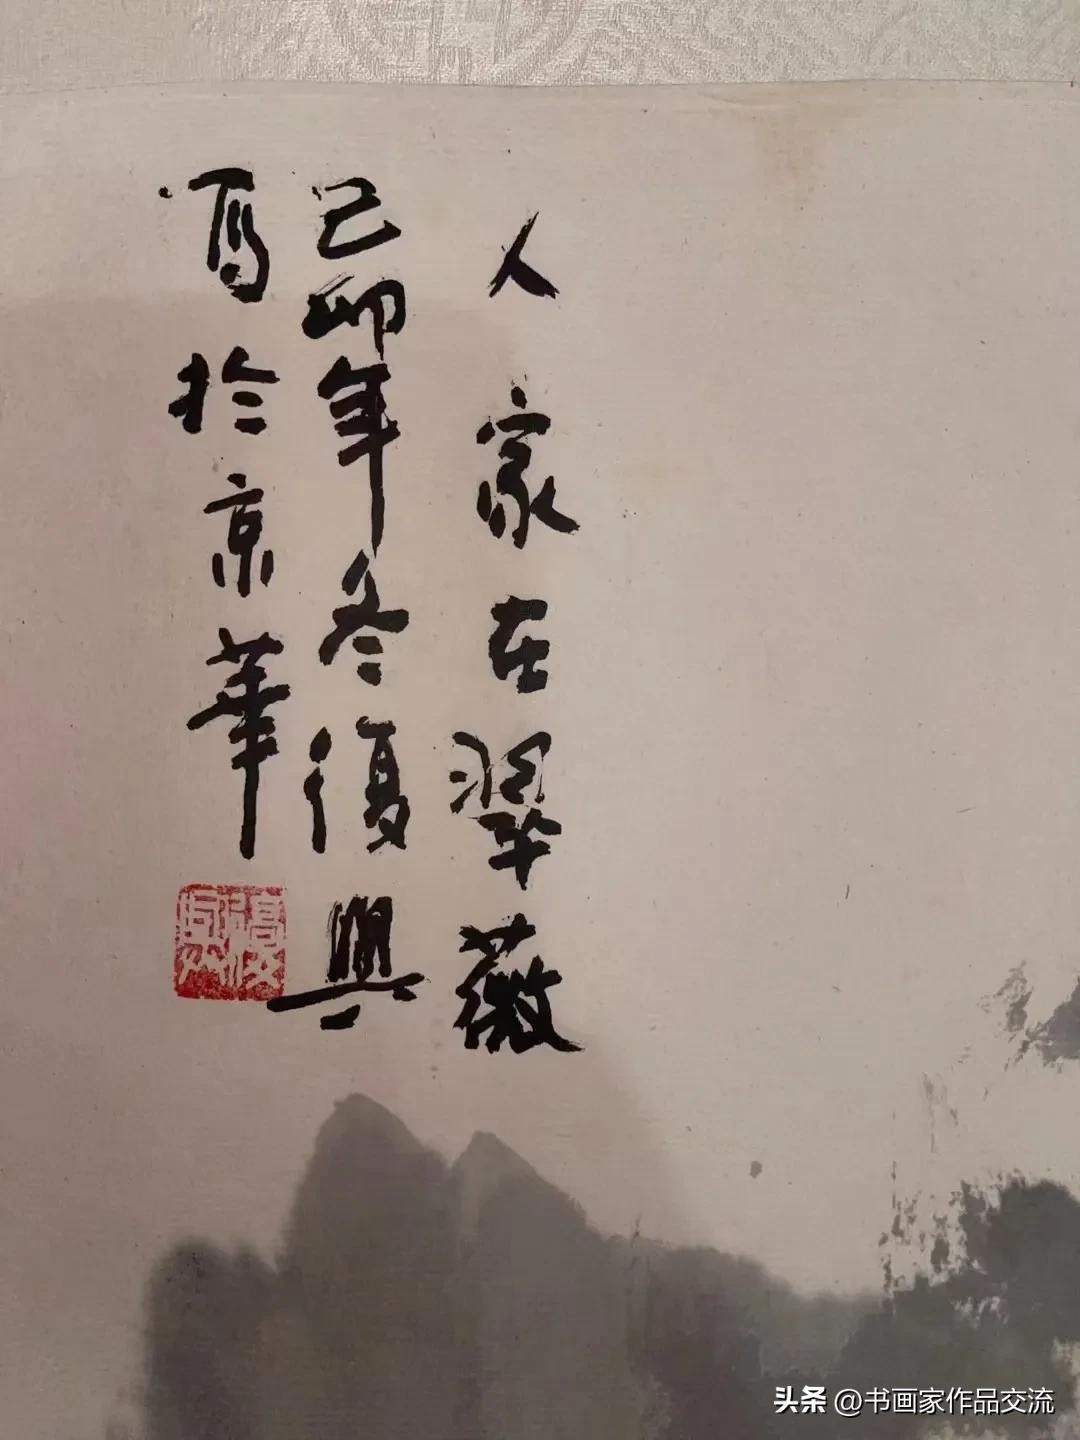 人家在翠薇
己卯年冬復興
寫於京華
头条 @书画家作品交流